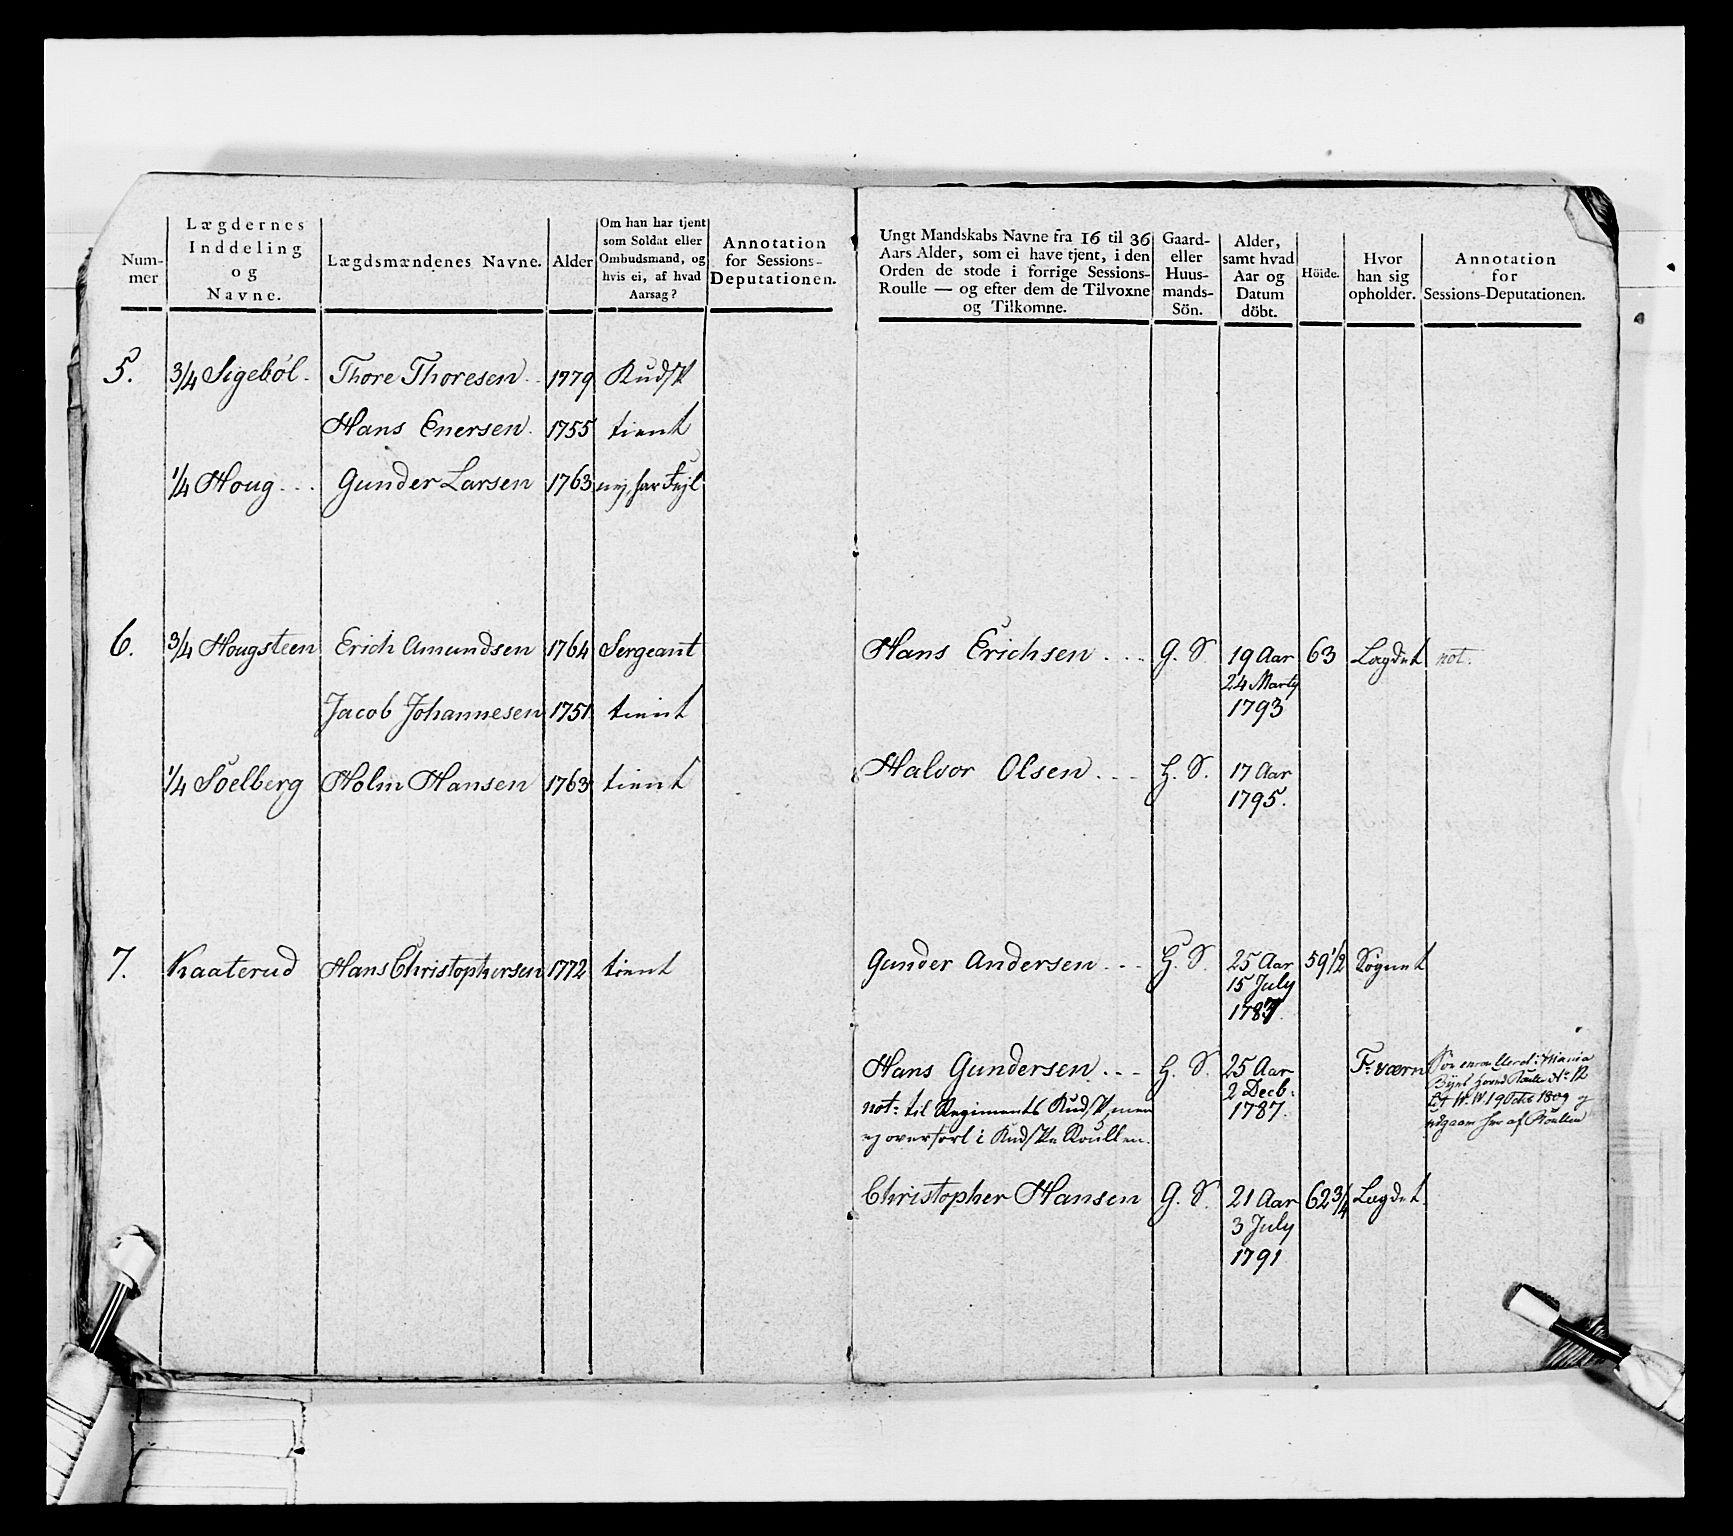 Num-
mer
Lægdernes
Inddeling
og
Navne.
Lægdsmændenes Navne.
Alder
Om han har tjent
som Soldat eller
Ombudsmand, og
hvis ei, af hvad
Aarsag?
Annotation
for Sessions-
Deputationen.
5. 3/4 Sigeböl. Thore Thoresen 1779 Kudsk
Hans Enersen. 1755 tient
1/4 Houg... Gunder Larsen 1763 nej, har Fejl
6. 3/4 Hougsteen Erich Amundsen 1764 Sergeant
Jacob Johannesen 1751 tient
1/4 Soelberg Holm Hansen 1763 tient
7. Kaaterud Hans Christophersen 1772 tient
Ungt Mandskabs Navne fra 16 til 36
Aars Alder, som ei have tjent, i den
Orden de stode i forrige Sessions-
Roulle — og efter dem de Tilvoxne
og Tilkomne.
Gaard-
eller
Huus-
mands-
Sön.
Alder,
samt hvad
Aar og
Datum
döbt.
Höide.
Hvor
han sig
opholder.
Annotation
for
Sessions-Deputationen.
Hans Erichsen... G. S. 19 Aar 63 Lægdet not.
24 Martj
1793
Halvor Olsen... H. S. 17 Aar
1795.
Gunder Andersen... H. S. 25 Aar 59 1/2 Sognet
15 July
1787.
Hans Gundersen... H. S. 25 Aar F: værn
2 Decb:
1787.
not: til Regiments Kudsk, men
ej overført i Kudske Roullen.
Søe enroulleret i Maria
Byes Hoved Roulle No 12
Lit W. W 19 Octb 1809 og
udgaaer her af Roullen
Christopher Hansen G. S. 21 Aar 62 3/4 Lægdet
3 July
1791